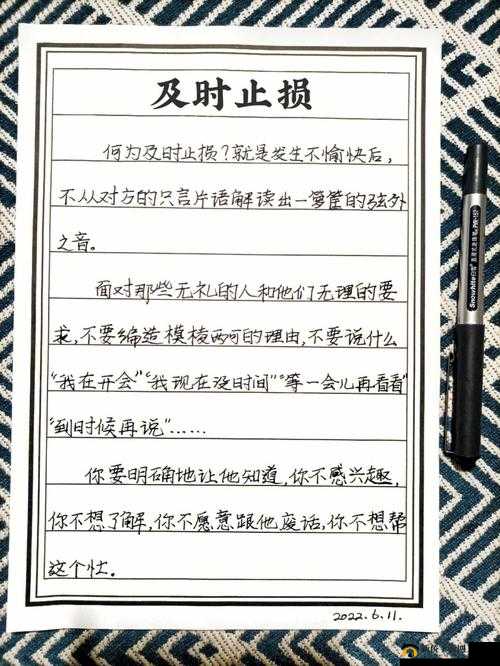 及时止损
何为及时止损?就是发生不愉快后,
不从对方的只言片语解读出一箩筐的弦外
之音。
面对那些无礼的人和他们无理的要
求,不要编造模棱两可的理由,不要说什么
"我在开会""我现在没时间""等一会儿再看看"
"到时候再说"……
你要明确地让他知道,你不感兴趣,
你不想了解,你不愿意跟他废话,你不想帮
这个忙。
2022.6.11.
Snowhite